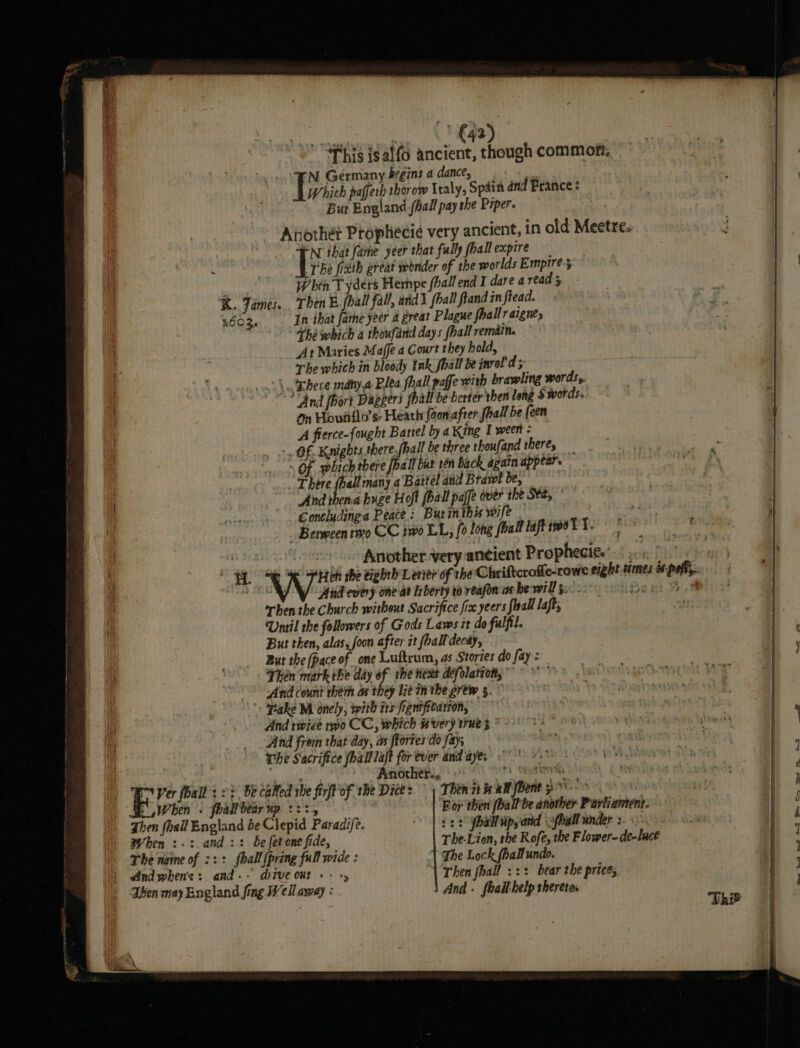 (42)
This is alſo ancient, though common.
IN Germany begins a dance,
Which paſſeth thorow Italy, Spain and France:
But England ſhall pay the Piper.
Another Prophecie very ancient, in old Meetre.
IN that ſame yeer that fully ſhall expire
The ſixth great wonder of the worlds Empire;
When Tyders Hempe ſhall end I dare a read;
K. James. Then E ſhall fall, and I ſhall ſtand in ſtead.
1603. In that ſame yeer a great Plague ſhall raigne,
The which a thouſand days ſhall remain.
At Maries Maſſe a Court they hold,
The which in bloody Ink ſhall be inrol'd;
There many a Plea ſhall paſſe with brawling words,
And ſhort Daggers ſhall be better then long Swords.
On Hounſlo's-Heath ſoon after ſhall be ſeen
A fierce-fought Battel by a King I ween:
Of Knights there ſhall be three thouſand there,
Of which there ſhall but ten back again appear.
There ſhall many a Battel and Brawl be,
And then a huge Hoſt ſhall paſſe over the Sea,
Concluding a Peace: But in this wiſe
Between two CC two LL, ſo long ſhall laſt two I I.
Another very ancient Prophecie.
H. WHen the eighth Letter of the Chriſtcroſſe-rowe eight times is paſt,
And every one at liberty to reaſon as he will;
Then the Church without Sacrifice ſix yeers ſhall laſt,
Until the followers of Gods Laws it do fulfil.
But then, alas, ſoon after it ſhall decay,
But the ſpace of one Luſtrum, as Stories do ſay:
Then mark the day of the next deſolation,
And count them as they lie in the grew;
Take M onely, with its ſignification,
And twice two CC, which is very true;
And from that day, as ſtories do ſay,
The Sacrifice ſhall laſt for ever and aye.
Another.
EVer ſhall ::: be called the firſt of the Dice:
When · ſhall bear up :::,
Then ſhall England be Clepid Paradiſe.
When :·: and :: be ſet one ſide,
The name of ::: ſhall ſpring full wide:
And when : and ·· drive out ···,
Then may England ſing Wellaway:
Then it is all ſhent;
For then ſhall be another Parliament.
::: ſhall up, and ſhall under :.
The Lion, the Roſe, the Flower-de-luce
The Lock ſhall undo.
Then ſhall ::: bear the price,
And · ſhall help thereto.
This